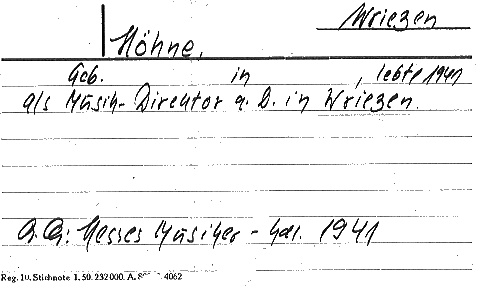 Wriezen
Höhne,
Geb. in , lebte 1941
als Musik-Direktor a. D. in Wriezen.
Hesses Musiker-Kal. 1941
Reg. 10. Stichnote 1. 50. 232000. A. 4062